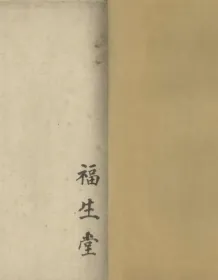 福生堂